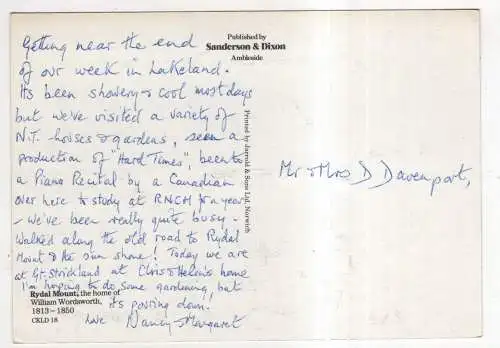 Getting near the end
of our week in Lakeland.
Its been showery & cool most days
but we've visited a variety of
N.T. houses & gardens, seen a
production of "Hard Times", been to
a Piano Recital by a Canadian
over here to study at RNCM for a year
- We've been really quite busy -
Walked along the old road to Rydal
Mount & the sun shone! Today we are
at Gt. Strickland at Chris & Helen's home
I'm hoping to do some gardening but
its pouring down!
Love Nancy & Margaret
Rydal Mount, the home of
William Wordsworth,
1813–1850
CKLD 18
Published by
Sanderson & Dixon
Ambleside
Printed by Jarrold & Sons Ltd, Norwich
Mr & Mrs D Davenport,